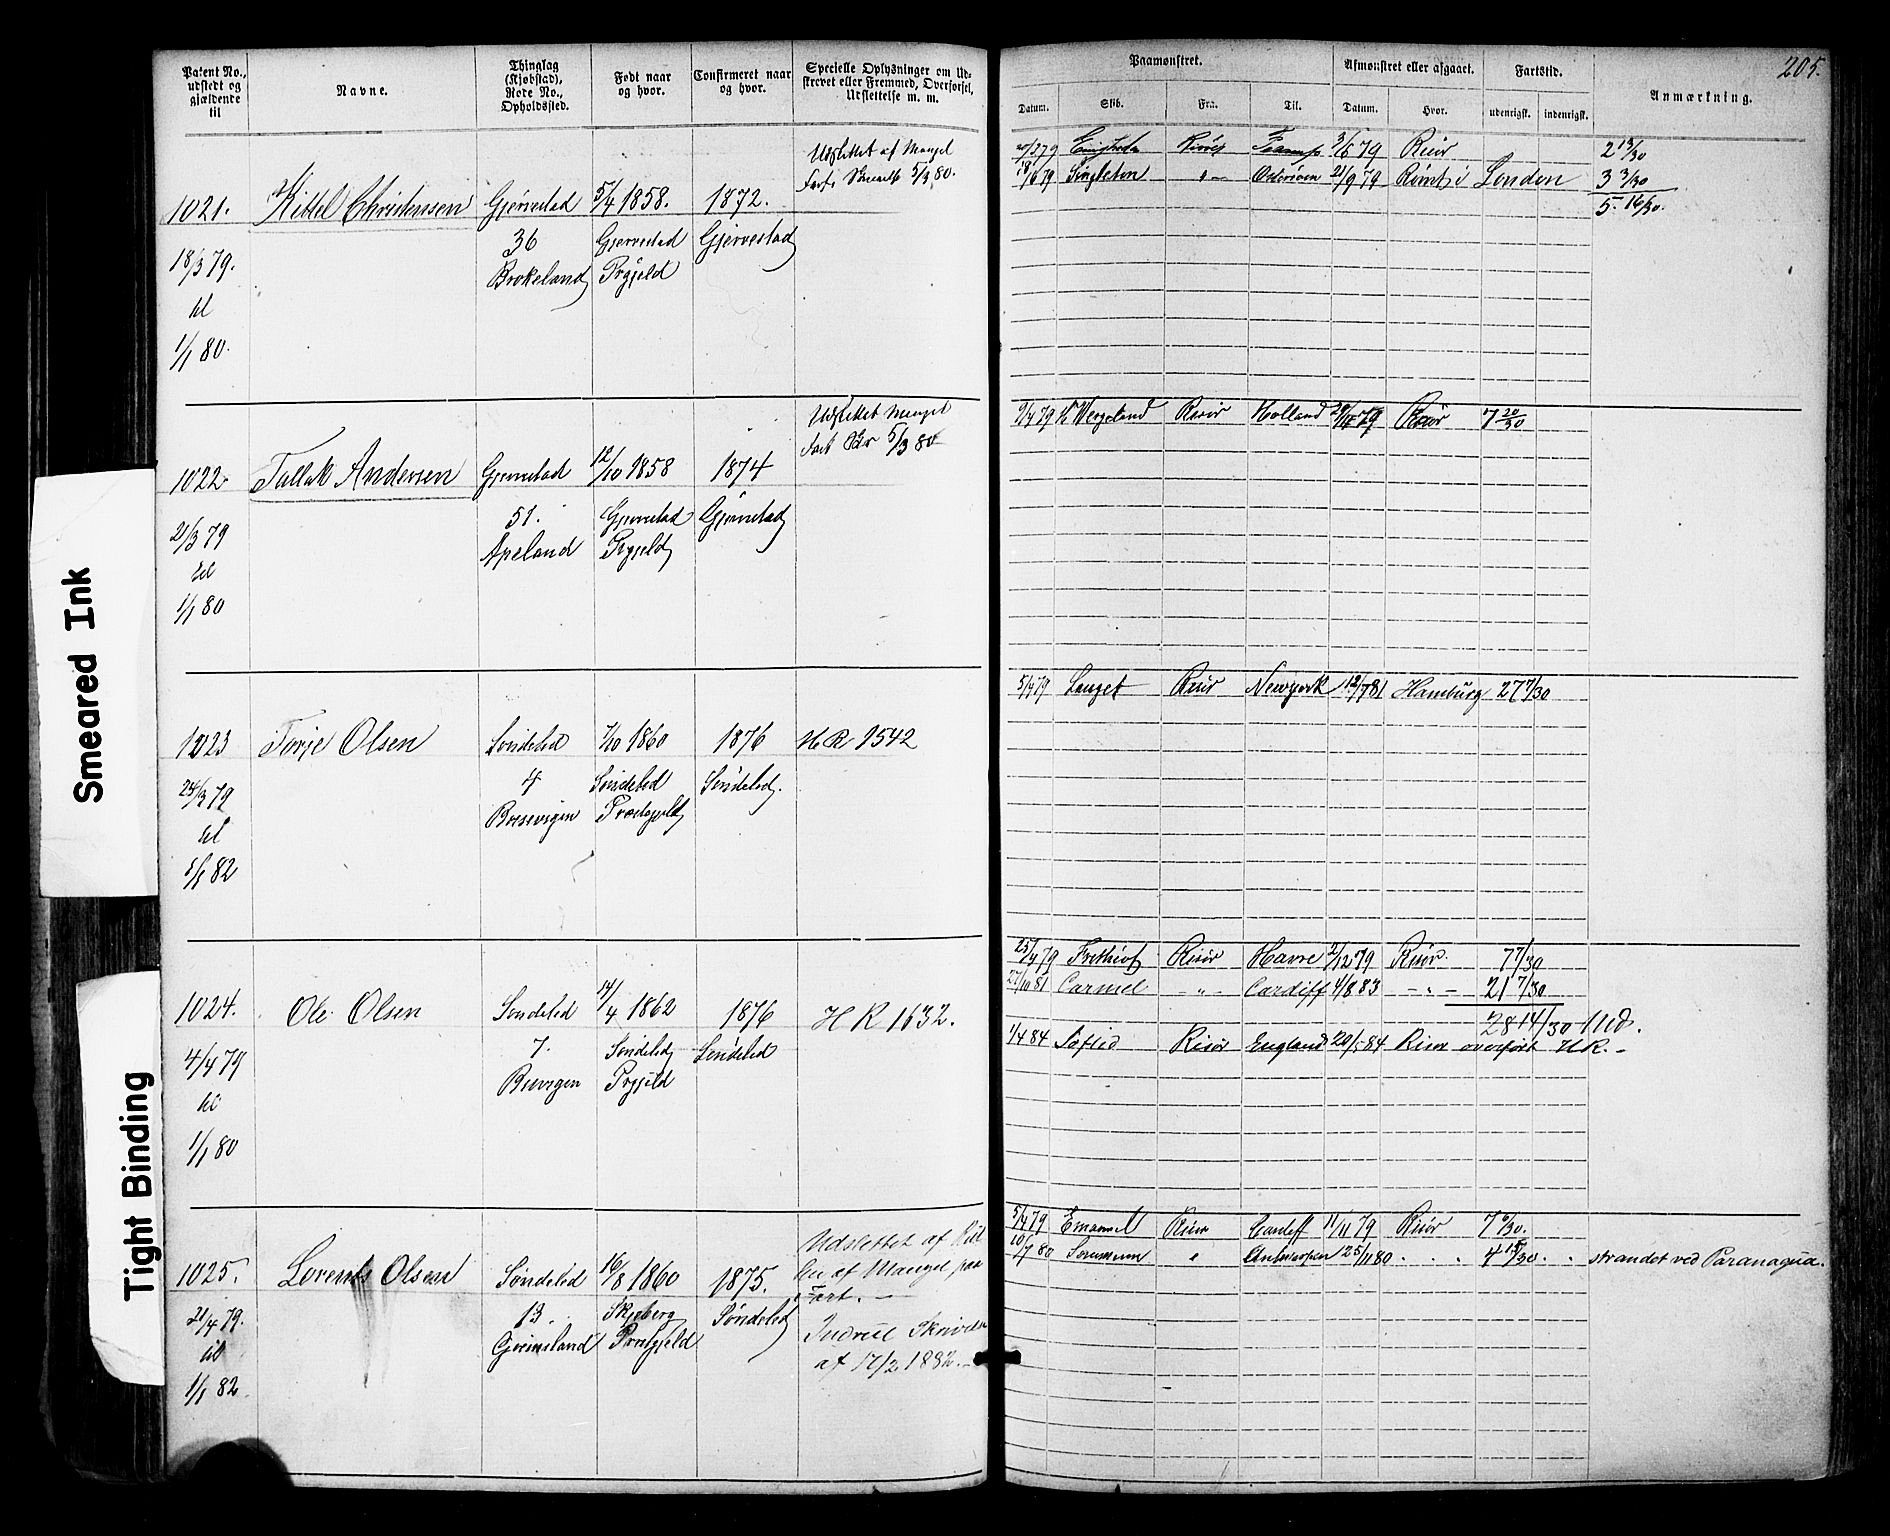 205.
Patent No., udstedt og gjældende til
Navne.
Thinglag (Kjøbstad), Rode No., Opholdssted.
Født naar og hvor.
Confirmeret naar og hvor.
Specielle Oplysninger om Udskrevet eller Fremmed, Overførsel, Udslettelse m. m.
Paamønstret.
Afmønstret eller afgaaet.
Fartstid.
Anmærkning.
Datum. Skib. Fra. Til. Datum. Hvor. udenrigsk. indenrigsk.
Udslettet af Mangel
5/3 80.
1021. Kittel Christensen Gjerrestad 5/4 1858. 1872.
36 Gjerrestad Gjerrestad
18/3 79. Brokeland Prgjeld
til
1/1 80.
3/6 79 Risør 2 13/30
18/6 79 Singleton " 21/9 79 Rømt i London 3 3/30
5. 16/30.
Udslettet Mangel
Fart 5/3 80
1022. Tallak Andersen Gjerrestad 12/10 1858 1874
51. Gjerrestad Gjerrestad
21/3 79 Apeland Prgjeld
til
1/1 80
9/4 79 Wergeland Risør Holland 29/11 79 Risør 7 20/30
1023 Torje Olsen Søndeled 1/10 1860 1876 HR 1542
4 Søndeled Søndeled.
24/3 79 Præstegjeld
til
1/1 82
5/4 79 Risør Newyork 12/7 81 Hamburg 27 7/30
1024. Ole Olsen Søndeled 14/4 1862 1876 HR 1632.
7. Søndeled Søndeled
4/4 79 Prgjeld
til
1/1 80
25/4 79 Frithiof Risør Havre 2/12 79 Risør. 7 7/30
27/10 81 Carmel - " - Cardiff 4/8 83 - " - 21 7/30
28 14/30 Ud.
1/4 84 Risør England 20/5 84 Risør overført HR. -
Udslettet af
af Mangel paa
Fart. -
1025. Lorents Olsen Søndeled 16/8 1860 1875.
13. Skjeberg Søndeled
21/4 79. Grimsland Prestgjeld
til
1/1 82
af 17/2 1882. -
5/4 79 Emanuel Risør Cardiff 11/11 79 Risør 7 6/30.
10/7 80 " Antwerpen 25/11 80 . . . 4 15/30 . . strandet ved Paranagua.
Smeared Ink
Tight Binding